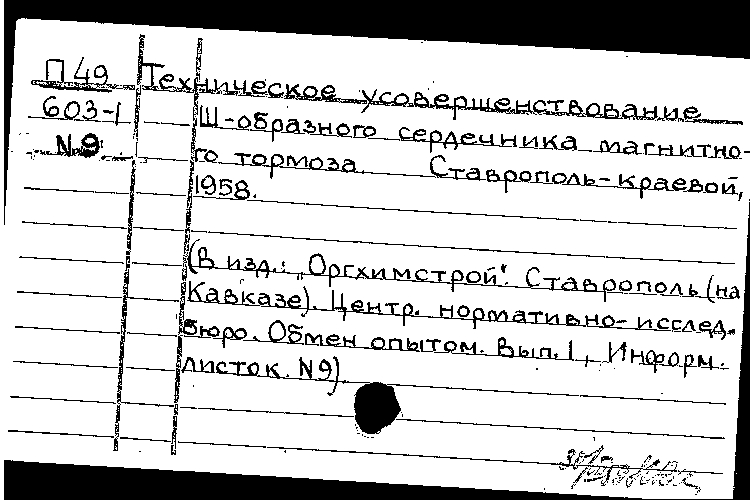 П 49 Техническое усовершенствование
603-1 Ш-образного сердечника магнитно-
N 9 го тормоза. Ставрополь-краевой,
1958.
(В изд.: „Оргхимстрой". Ставрополь (на
Кавказе). Центр. нормативно-исслед.
бюро. Обмен опытом. Вып. 1, Информ.
листок. N9).